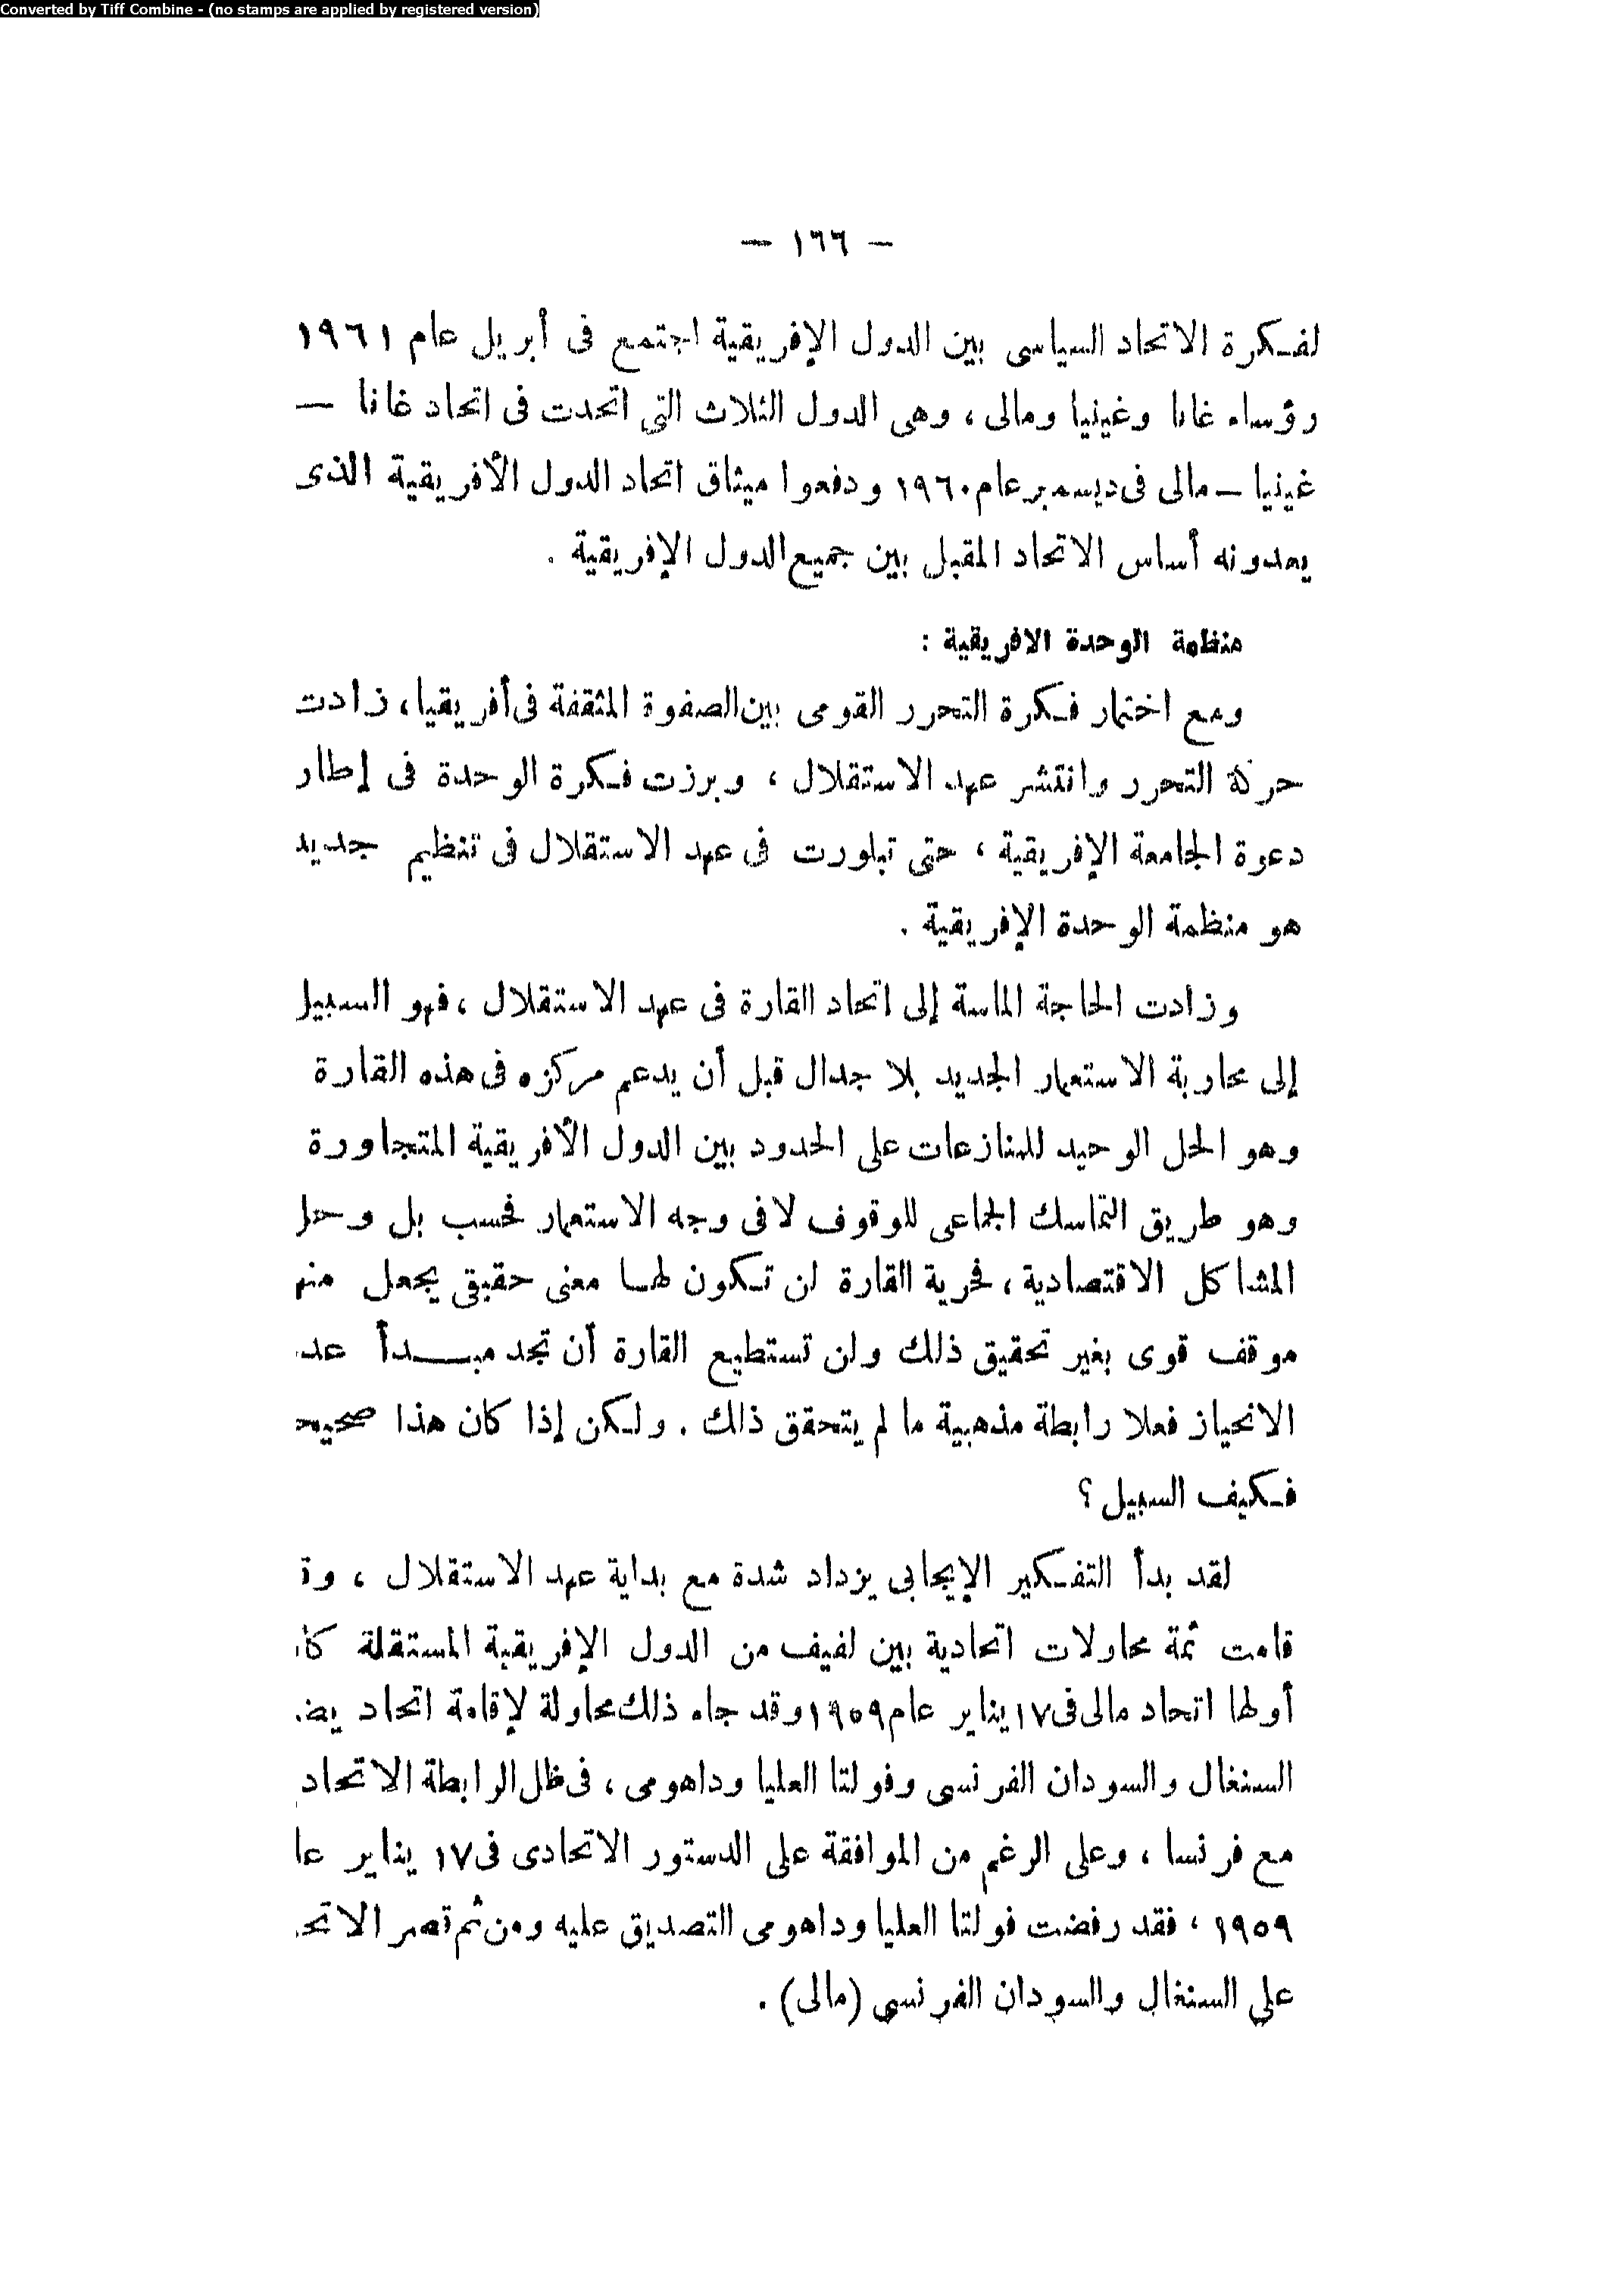 Converted by Tiff Combine - (no stamps are applied by registered version)
— ١٦٦ —
لفكرة الاتحاد السياسى بين الدول الإفريقية اجتمع فى أبريل عام ١٩٦١
رؤساء غانا وغينيا ومالى ، وهى الدول الثلاث التى اتحدت فى اتحاد غانا —
غينيا — مالى فى ديسمبر عام ١٩٦٠ ودفعوا ميثاق اتحاد الدول الأفريقية الذى
يعدونه أساس الاتحاد المقبل بين جميع الدول الإفريقية .
منظمة الوحدة الافريقية :
ومع اختمار فكرة التحرر القومى بين الصفوة المثقفة فى أفريقيا ، زادت
حركة التحرر وانتشر عهد الاستقلال ، وبرزت فكرة الوحدة فى إطار
دعوة الجامعة الإفريقية ، حتى تبلورت فى عهد الاستقلال فى تنظيم جديد
هو منظمة الوحدة الإفريقية .
وزادت الحاجة الماسة إلى اتحاد القارة فى عهد الاستقلال ، فهو السبيل
إلى محاربة الاستعمار الجديد بلا جدال قبل أن يدعم مركزه فى هذه القارة
وهو الحل الوحيد للمنازعات على الحدود بين الدول الأفريقية المتجاورة
وهو طريق التماسك الجماعى للوقوف لا فى وجه الاستعمار فحسب بل وحل
المشاكل الاقتصادية ، فحرية القارة لن تكون لها معنى حقيقى يجعل منه
موقف قوى بغير تحقيق ذلك ولن تستطيع القارة أن تجد مبدأ عد
الانحياز فعلا رابطة مذهبية ما لم يتحقق ذلك . ولكن إذا كان هذا صحيح
فكيف السبيل ؟
لقد بدأ التفكير الإيجابى يزداد شدة مع بداية عهد الاستقلال ، وق
قامت ثمة محاولات اتحادية بين لفيف من الدول الإفريقية المستقلة كان
أولها اتحاد مالى فى ١٧ يناير عام ١٩٥٩ وقد جاء ذلك محاولة لإقامة اتحاد يضم
السنغال والسودان الفرنسى وفولتا العليا وداهومى ، فى ظل الرابطة الاتحاد
مع فرنسا ، وعلى الرغم من الموافقة على الدستور الاتحادى فى ١٧ يناير عا
١٩٥٩ ، فقد رفضت فولتا العليا وداهومى التصديق عليه ومن ثم قصر الاتح
على السنغال والسودان الفرنسى (مالى) .